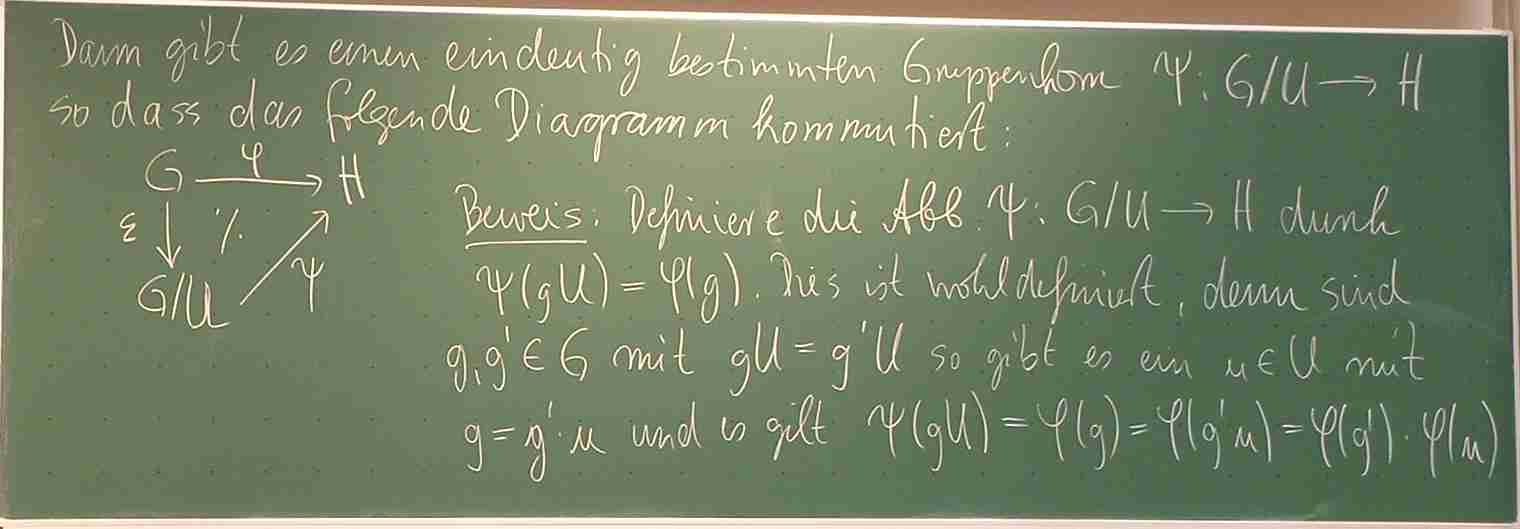 Dann gibt es einen eindeutig bestimmten Gruppenhom Ψ: G/U → H
so dass das folgende Diagramm kommutiert:
G φ→ H
ε ↓ ·/. ↗ Ψ
G/U
Beweis: Definiere die Abb. Ψ: G/U → H durch
Ψ(gU) = φ(g). Dies ist wohldefiniert, denn sind
g,g' ∈ G mit gU = g'U so gibt es ein u ∈ U mit
g = g'·u und es gilt Ψ(gU) = φ(g) = φ(g'u) = φ(g')·φ(u)